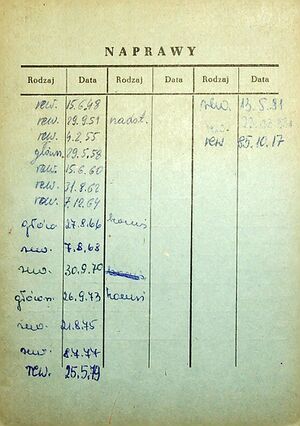 NAPRAWY
Rodzaj Data Rodzaj Data Rodzaj Data
rew. 15.6.48 rew. 13.5.81
rew. 29.9.51 nadot.
rew. 4.2.55 rew 85.10.17
główn. 29.5.58
rew. 15.6.60
rew. 31.8.62
rew. 7.12.64
główna 27.8.66
rew. 7.8.68
rew. 30.9.70
główn. 26.9.73
rew. 21.8.75
rew. 8.7.77
rew. 25.5.79